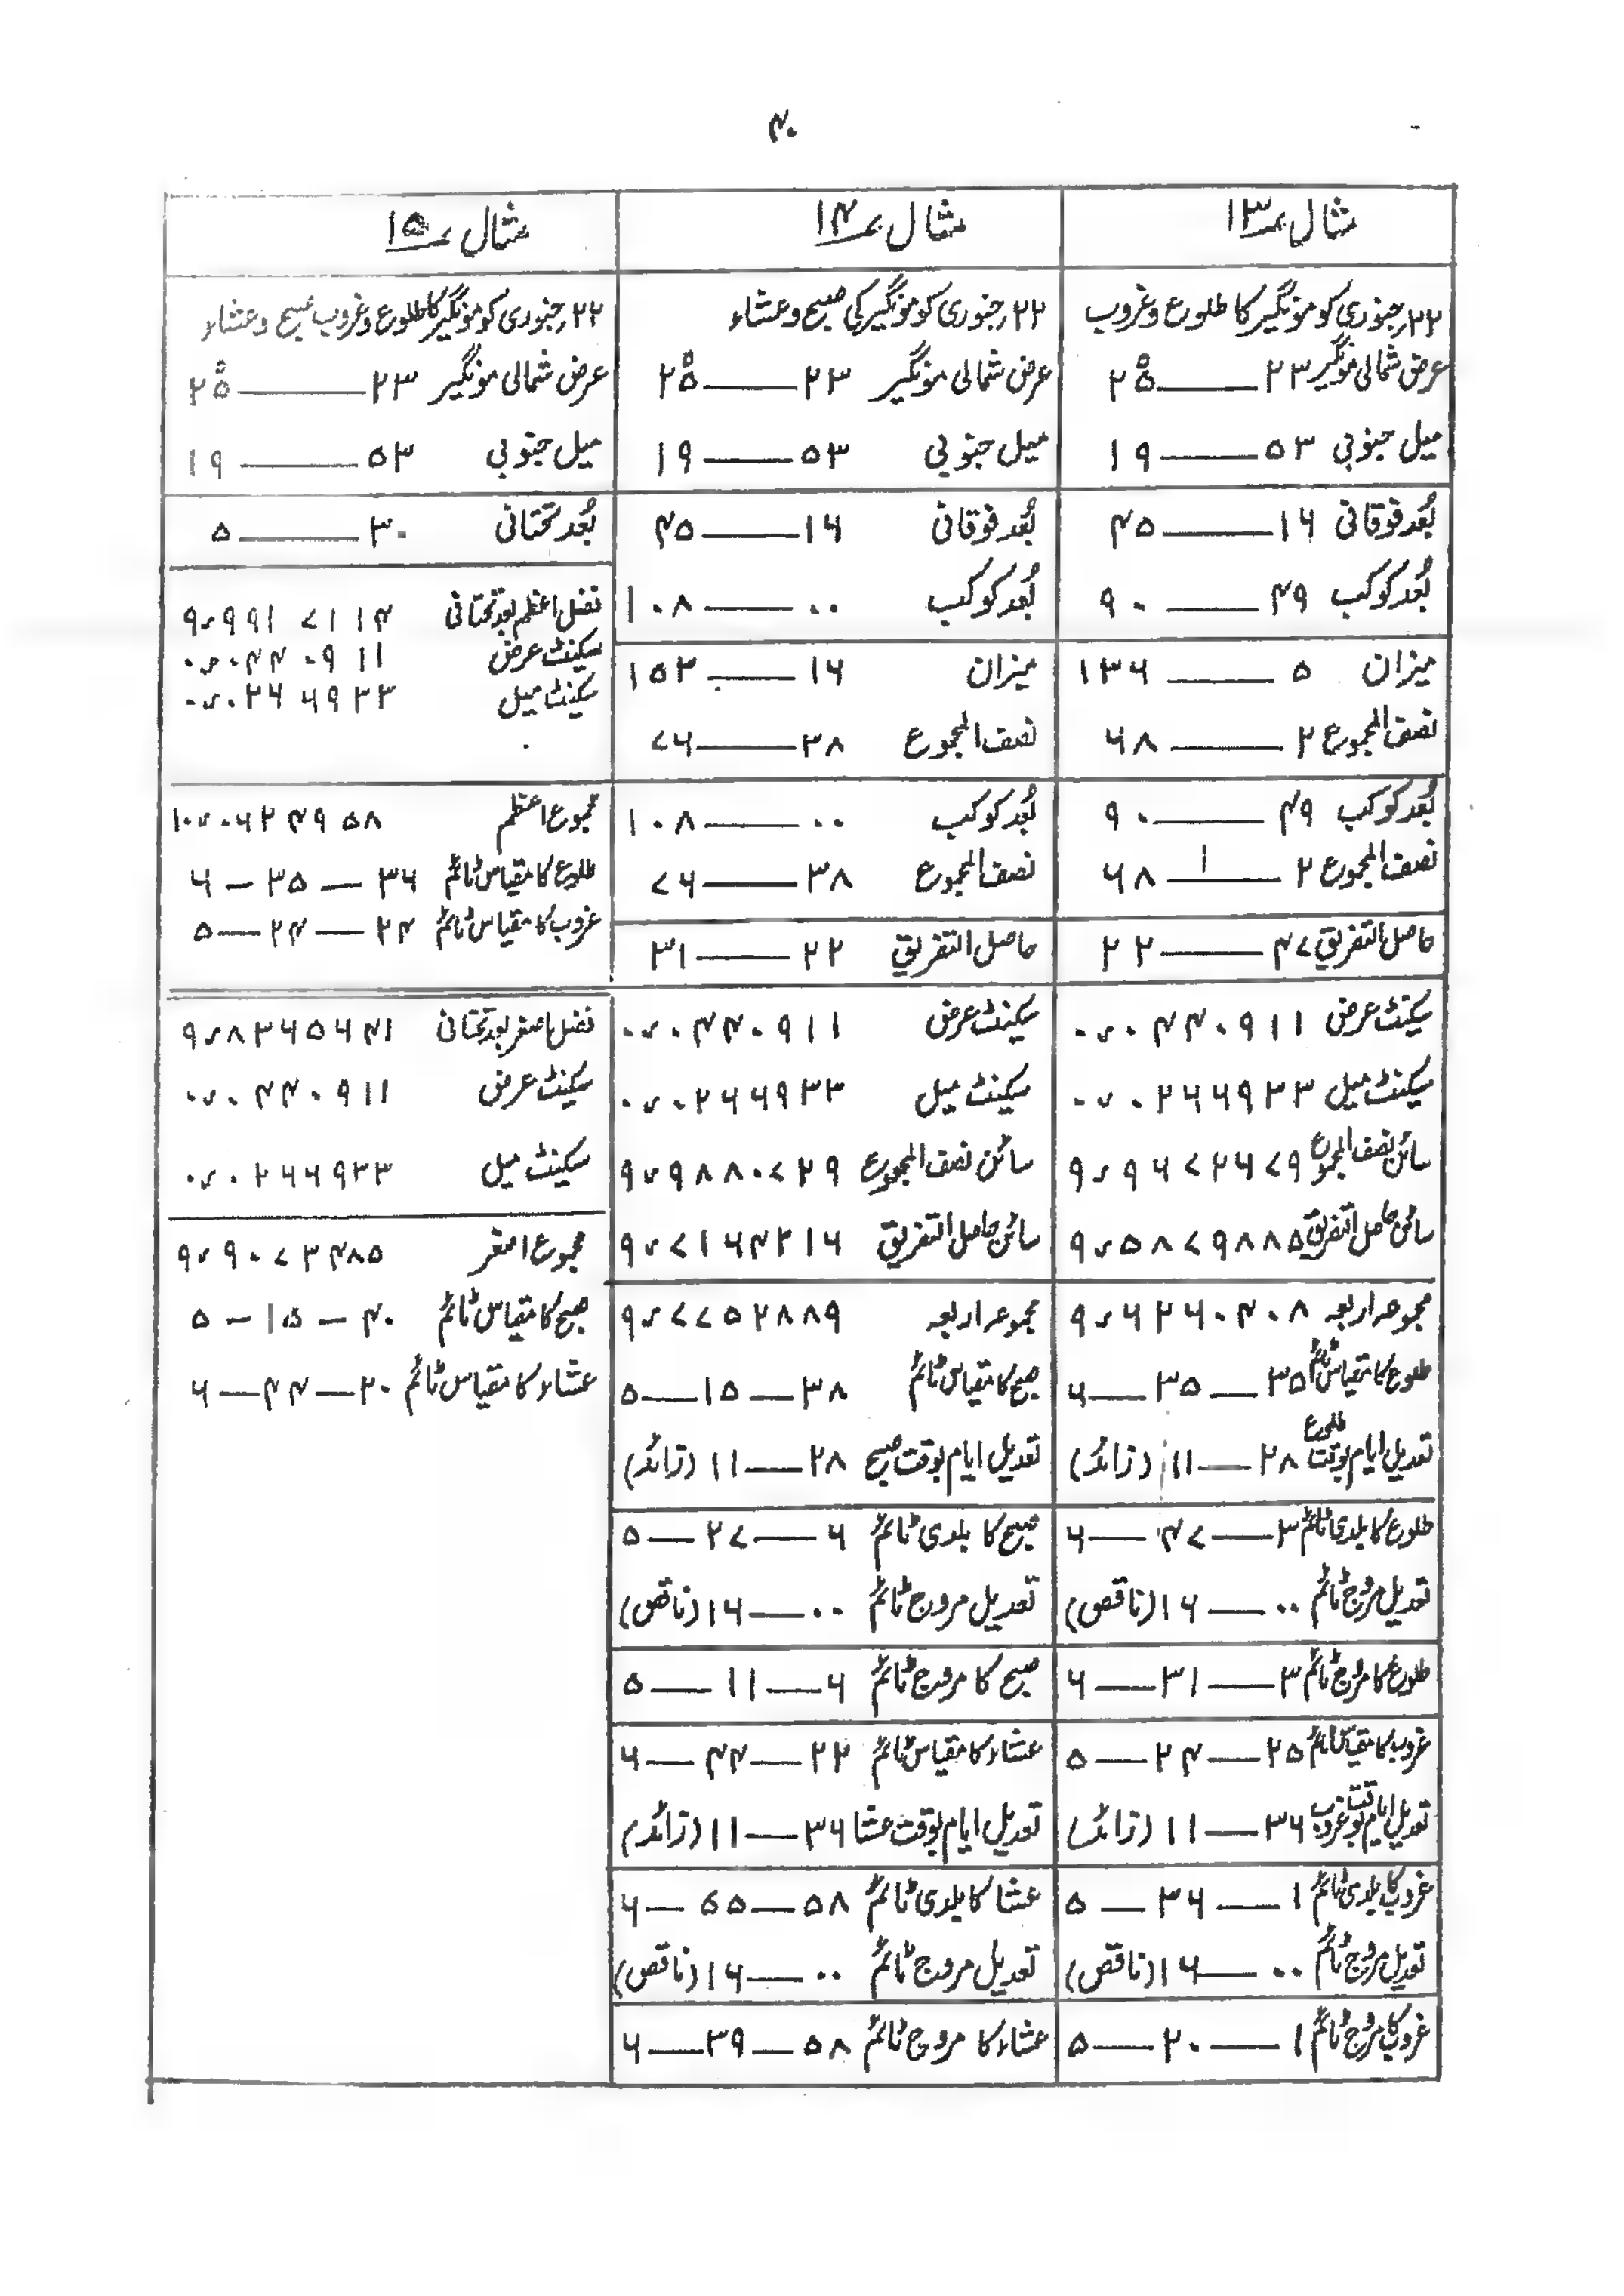 ۴۰
مثال ۱۳
۲۲؍جنوری کو مونگیر کا طلوع وغروب
عرض شمالی مونگیر ۲۳ ــــ ۲۵°
میل جنوبی ۵۳ ــــ ۱۹
بُعد فوقانی ۱۶ ــــ ۴۵
بُعد کوکب ۴۹ ــــ ۹۰
میزان ۵ ــــ ۱۳۶
نصف المجموع ۲ ــــ ۶۸
بُعد کوکب ۴۹ ــــ ۹۰
نصف المجموع ۲ ــــ ۶۸
حاصل التفریق ۴۷ ــــ ۲۲
سکینٹ عرض ۰٫۰۴۴۰۹۱۱
سکینٹ میل ۰٫۰۲۶۶۹۳۳
سائن نصف المجموع ۹٫۹۶۷۲۶۷۹
سائن حاصل التفریق ۹٫۵۸۷۹۸۸۵
مجموعہ اربعہ ۹٫۶۲۶۰۴۰۸
طلوع کا مقیاس ٹائم ۳۵ ــ ۳۵ ــ ۶
تعدیل ایام بوقت طلوع ۲۸ ــ ۱۱ (زائد)
طلوع کا بلدی ٹائم ۳ ــ ۴۷ ــ ۶
تعدیل مروج ٹائم ۰۰ ــ ۱۶ (ناقص)
طلوع کا مروج ٹائم ۳ ــ ۳۱ ــ ۶
غروب کا مقیاس ٹائم ۲۵ ــ ۲۴ ــ ۵
تعدیل ایام بوقت غروب ۳۶ ــ ۱۱ (زائد)
غروب کا بلدی ٹائم ۱ ــ ۳۶ ــ ۵
تعدیل مروج ٹائم ۰۰ ــ ۱۶ (ناقص)
غروب کا مروج ٹائم ۱ ــ ۲۰ ــ ۵
مثال ۱۴
۲۲؍جنوری کو مونگیر کی صبح وعشاء
عرض شمالی مونگیر ۲۳ ــــ ۲۵°
میل جنوبی ۵۳ ــــ ۱۹
بُعد فوقانی ۱۶ ــــ ۴۵
بُعد کوکب ۰۰ ــــ ۱۰۸
میزان ۱۶ ــــ ۱۵۳
نصف المجموع ۳۸ ــــ ۷۶
بُعد کوکب ۰۰ ــــ ۱۰۸
نصف المجموع ۳۸ ــــ ۷۶
حاصل التفریق ۲۲ ــــ ۳۱
سکینٹ عرض ۰٫۰۴۴۰۹۱۱
سکینٹ میل ۰٫۰۲۶۶۹۳۳
سائن نصف المجموع ۹٫۹۸۸۰۷۲۹
سائن حاصل التفریق ۹٫۷۱۶۴۳۱۶
مجموعہ اربعہ ۹٫۷۷۵۲۸۸۹
صبح کا مقیاس ٹائم ۳۸ ــ ۱۵ ــ ۵
تعدیل ایام بوقت صبح ۲۸ ــ ۱۱ (زائد)
صبح کا بلدی ٹائم ۶ ــ ۲۷ ــ ۵
تعدیل مروج ٹائم ۰۰ ــ ۱۶ (ناقص)
صبح کا مروج ٹائم ۶ ــ ۱۱ ــ ۵
عشاء کا مقیاس ٹائم ۲۲ ــ ۴۴ ــ ۶
تعدیل ایام بوقت عشا ۳۶ ــ ۱۱ (زائد)
عشا کا بلدی ٹائم ۵۸ ــ ۵۵ ــ ۶
تعدیل مروج ٹائم ۰۰ ــ ۱۶ (ناقص)
عشاء کا مروج ٹائم ۵۸ ــ ۳۹ ــ ۶
مثال ۱۵
۲۲؍جنوری کو مونگیر کا طلوع وغروب صبح وعشاء
عرض شمالی مونگیر ۲۳ ــــ ۲۵°
میل جنوبی ۵۳ ــــ ۱۹
بُعد تحتانی ۳۰ ــــ ۵
فضل اعظم بعد تحتانی ۹٫۹۹۱۷۱۱۴
سکینٹ عرض ۰٫۰۴۴۰۹۱۱
سکینٹ میل ۰٫۰۲۶۶۹۳۳
مجموع اعظم ۱۰٫۰۶۲۴۹۵۸
طلوع کا مقیاس ٹائم ۳۶ ــ ۳۵ ــ ۶
غروب کا مقیاس ٹائم ۲۴ ــ ۲۴ ــ ۵
فضل اصغر بعد تحتانی ۹٫۸۳۶۵۶۴۱
سکینٹ عرض ۰٫۰۴۴۰۹۱۱
سکینٹ میل ۰٫۰۲۶۶۹۳۳
مجموع اصغر ۹٫۹۰۷۳۴۸۵
صبح کا مقیاس ٹائم ۴۰ ــ ۱۵ ــ ۵
عشاء کا مقیاس ٹائم ۲۰ ــ ۴۴ ــ ۶